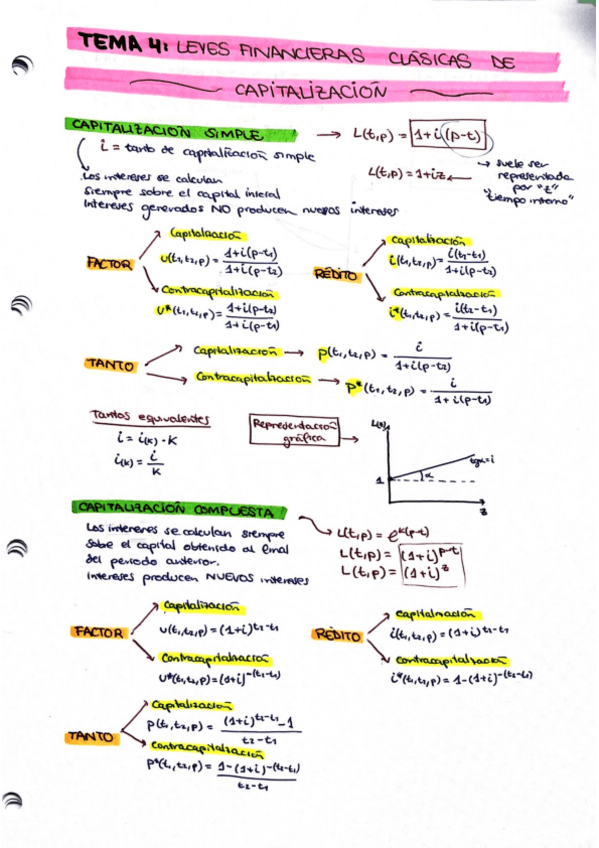 TEMA 4: LEYES FINANCIERAS CLÁSICAS DE
CAPITALIZACIÓN
CAPITALIZACIÓN SIMPLE → L(t,p) = 1+i(p-t)
i = tanto de capitalización simple
L(t,p) = 1+iz ←
→ suele ser
representada
por "z"
"tiempo interno"
Los intereses se calculan
siempre sobre el capital inicial
Intereses generados NO producen nuevos intereses
FACTOR
Capitalización
u(t₁,t₂,p) = 1+i(p-t₁) / 1+i(p-t₂)
Contracapitalización
u*(t₁,t₂,p) = 1+i(p-t₂) / 1+i(p-t₁)
RÉDITO
Capitalización
i(t₁,t₂,p) = i(t₂-t₁) / 1+i(p-t₂)
Contracapitalización
i*(t₁,t₂,p) = i(t₂-t₁) / 1+i(p-t₁)
TANTO
Capitalización → p(t₁,t₂,p) = i / 1+i(p-t₂)
Contracapitalización → p*(t₁,t₂,p) = i / 1+i(p-t₁)
Tantos equivalentes
i = i(k) · k
i(k) = i / k
Representación
gráfica
L(z)
1
α
tgα=i
z
CAPITALIZACIÓN COMPUESTA
Los intereses se calculan siempre
sobre el capital obtenido al final
del periodo anterior.
Intereses producen NUEVOS intereses
L(t,p) = e^k(p-t)
L(t,p) = (1+i)^p-t
L(t,p) = (1+i)^z
FACTOR
Capitalización
u(t₁,t₂,p) = (1+i)^t₂-t₁
Contracapitalización
u*(t₁,t₂,p) = (1+i)^-(t₂-t₁)
RÉDITO
Capitalización
i(t₁,t₂,p) = (1+i)^t₂-t₁
Contracapitalización
i*(t₁,t₂,p) = 1-(1+i)^-(t₂-t₁)
TANTO
Capitalización
p(t₁,t₂,p) = (1+i)^t₂-t₁ -1 / t₂-t₁
Contracapitalización
p*(t₁,t₂,p) = 1-(1+i)^-(t₂-t₁) / t₂-t₁